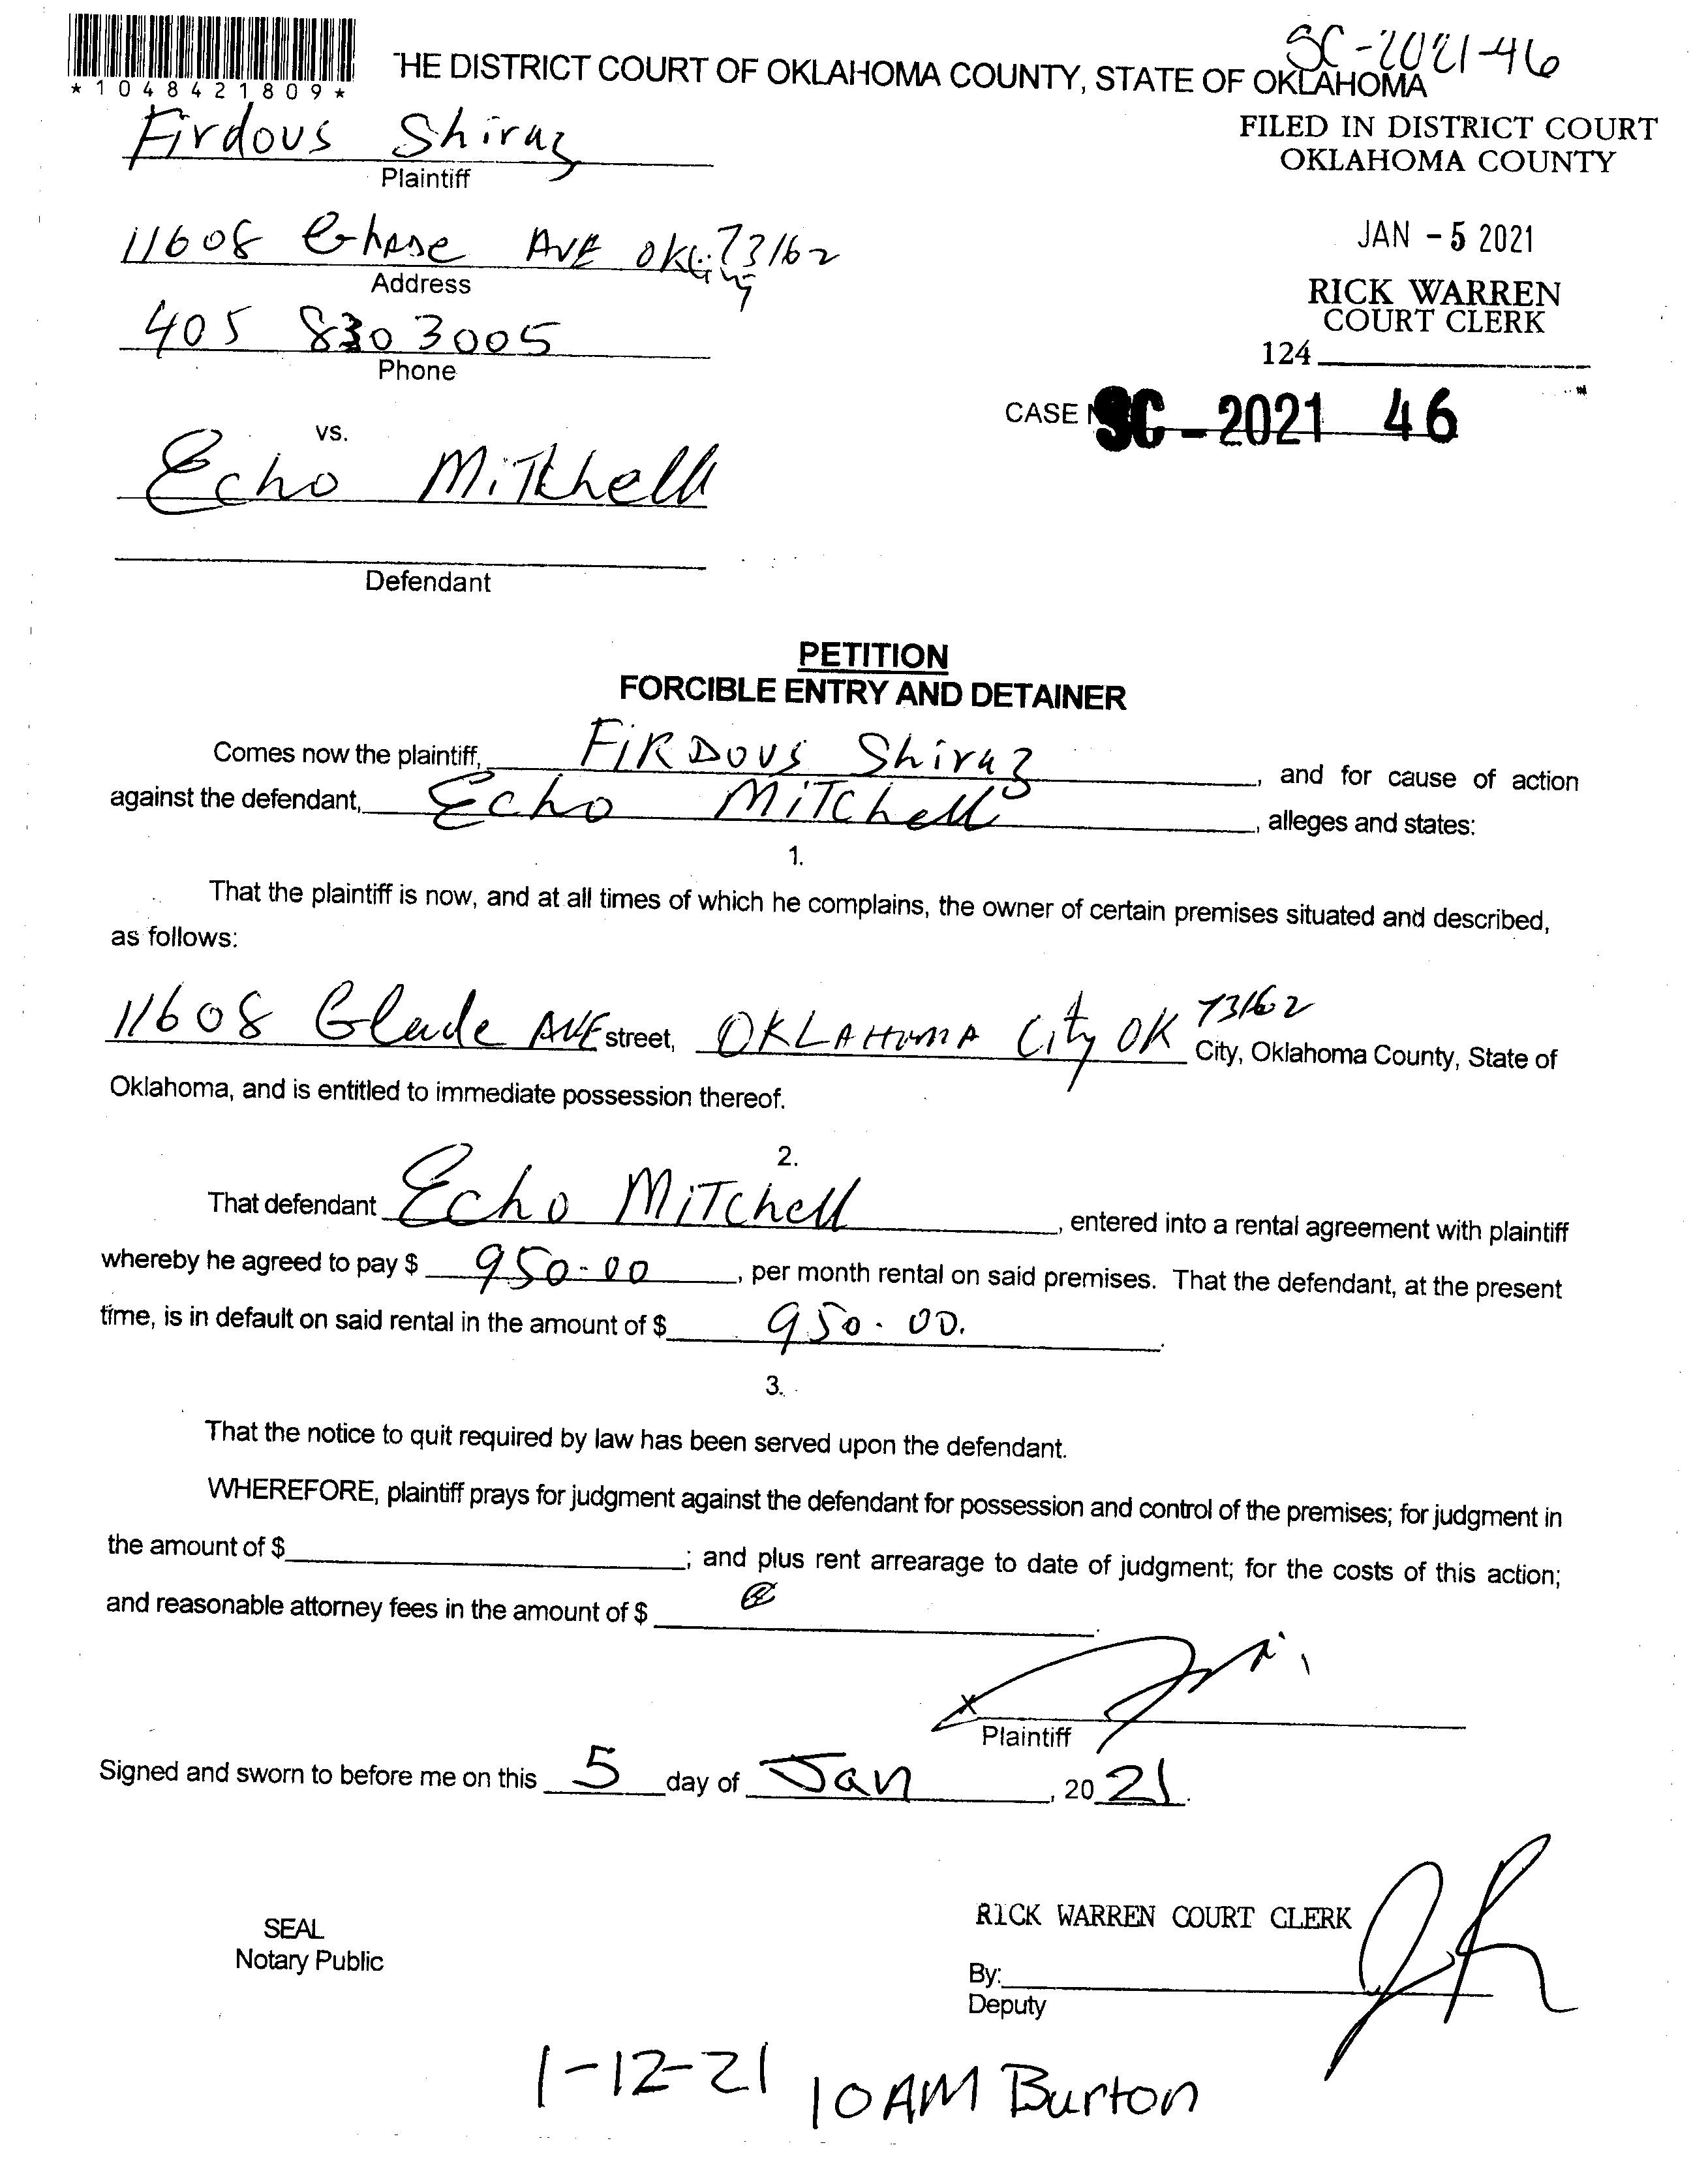 SC-2021-46
*1048421809*
THE DISTRICT COURT OF OKLAHOMA COUNTY, STATE OF OKLAHOMA
FILED IN DISTRICT COURT
OKLAHOMA COUNTY
Firdous Shiraz
Plaintiff
JAN -5 2021
11608 Ghase AVE OKC 73162
Address
RICK WARREN
COURT CLERK
405 830 3005
Phone
124
CASE SC-2021 46
vs.
Echo Mitchell
Defendant
PETITION
FORCIBLE ENTRY AND DETAINER
Comes now the plaintiff, FIRDOUS Shiraz, and for cause of action
against the defendant, Echo MITChell, alleges and states:
1.
That the plaintiff is now, and at all times of which he complains, the owner of certain premises situated and described,
as follows:
11608 Glade AVE street, OKLAHOMA City OK 73162 City, Oklahoma County, State of
Oklahoma, and is entitled to immediate possession thereof.
2.
That defendant Echo MITChell, entered into a rental agreement with plaintiff
whereby he agreed to pay $ 950.00, per month rental on said premises. That the defendant, at the present
time, is in default on said rental in the amount of $ 950.00.
3.
That the notice to quit required by law has been served upon the defendant.
WHEREFORE, plaintiff prays for judgment against the defendant for possession and control of the premises; for judgment in
the amount of $ ; and plus rent arrearage to date of judgment; for the costs of this action;
and reasonable attorney fees in the amount of $ .
X
Plaintiff
Signed and sworn to before me on this 5 day of Jan, 20 21.
RICK WARREN COURT CLERK
SEAL
Notary Public
By:
Deputy
1-12-21 10AM Burton